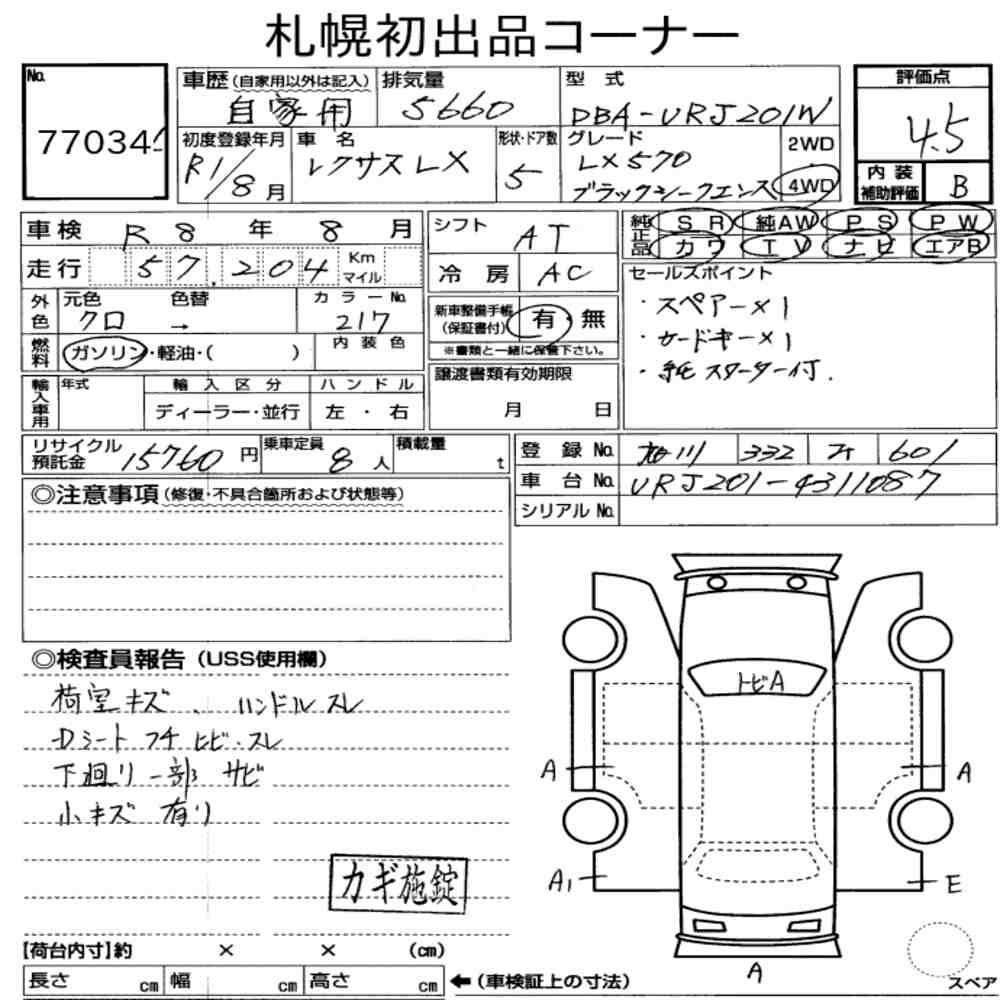 札幌初出品コーナー
No.
77034
車歴(自家用以外は記入) 排気量 型式 評価点
自家用 5660 DBA-URJ201W 4.5
初度登録年月 車名 形状・ドア数 グレード 2WD
R1/8月 レクサスLX 5 LX570 4WD
ブラックシークエンス
内装補助評価 B
車検 R8年8月
走行 57.204 Km マイル
外色 元色 色替 カラーNo.
クロ → 217
燃料 ガソリン・軽油・( ) 内装色
輸入車用 年式 輸入区分 ハンドル
ディーラー・並行 左・右
シフト AT
冷房 AC
新車整備手帳(保証書付) 有・無
※書類と一緒に保管下さい。
譲渡書類有効期限
月 日
純正品 SR 純AW PS PW
カワ TV ナビ エアB
セールスポイント
・スペアー×1
・カードキー×1
・純正スターター付.
リサイクル預託金 15760円 乗車定員 8人 積載量 t
登録No. 旭川 332 601
車台No. URJ201-4311087
シリアルNo.
◎注意事項(修復・不具合箇所および状態等)
◎検査員報告(USS使用欄)
荷室キズ、ハンドルスレ
Dシートフチヒビ・スレ
下廻り一部サビ
小キズ有り
カギ施錠
トビA
A A
A1 E
A
スペア
【荷台内寸】約 × × (cm)
長さ cm 幅 cm 高さ cm ←(車検証上の寸法)